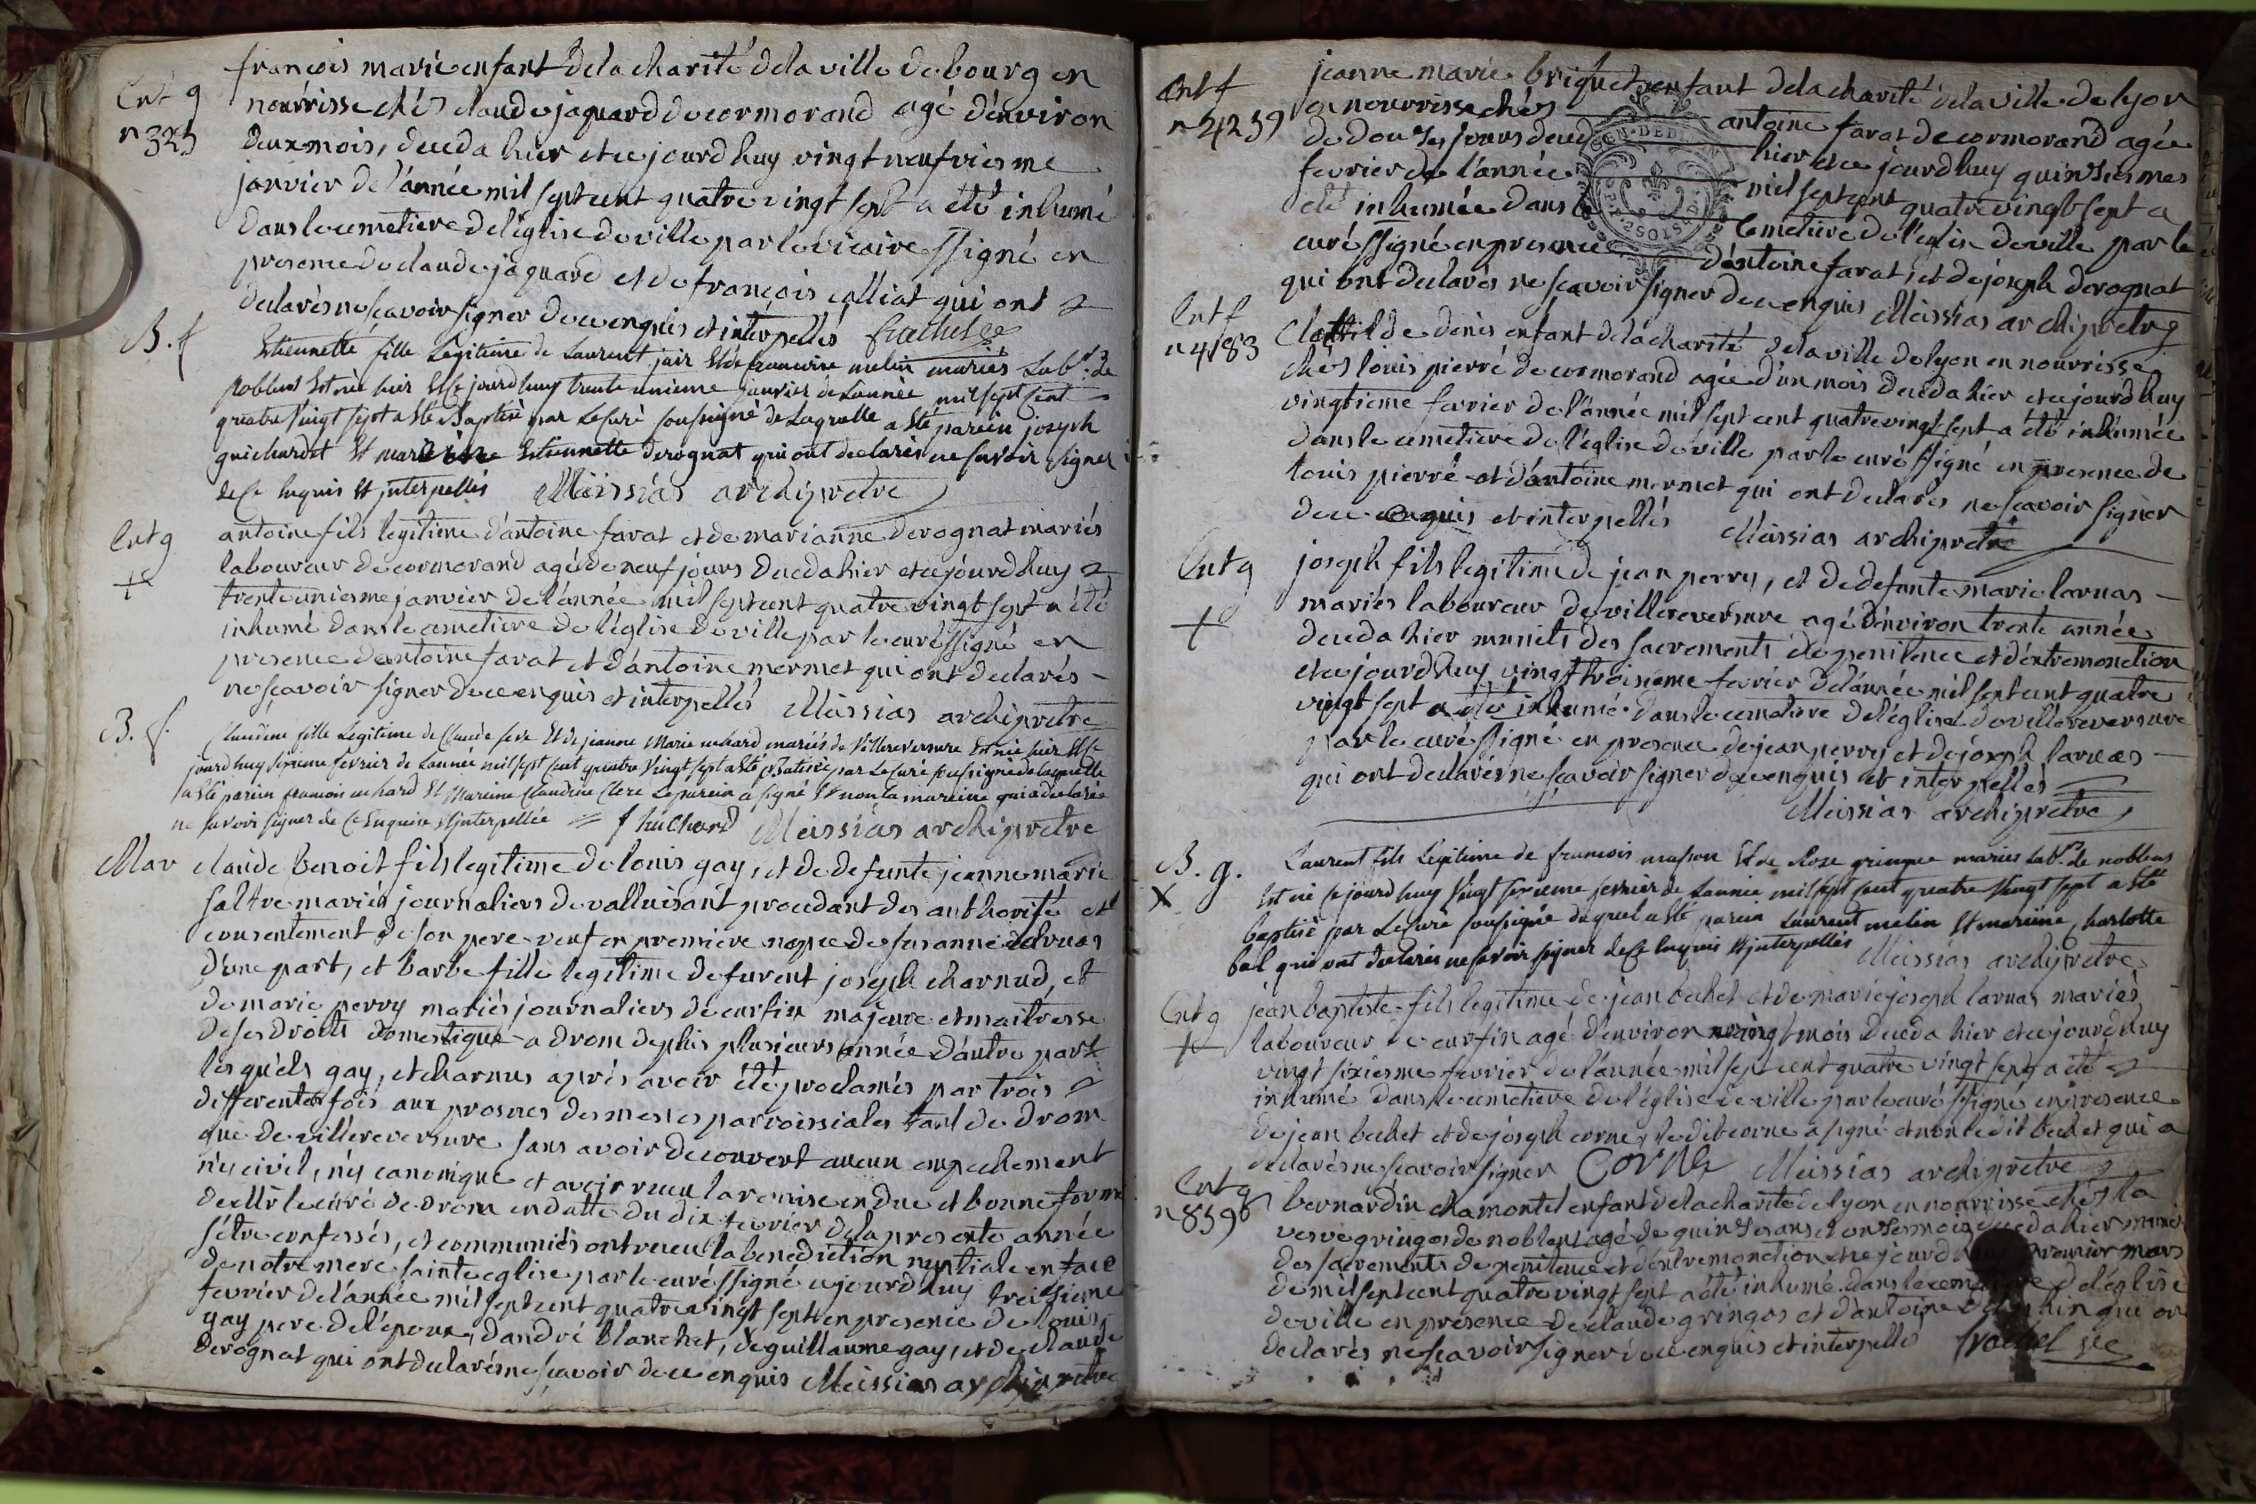 françois marie enfant de la charité de la ville de bourg en
Ent g
n 325
nourrisse chés claude jaquard de cormorand agé d'environ
deux mois, deceda hier et ce jourd huy vingt neufviesme
janvier de l'année mil sept cent quatre vingt sept a été inhumé
dans le cemetiere de l'église de ville par le vicaire ssigné en
presence de claude jaquard et de françois calliat qui ont
declarés ne scavoir signer de ce enquis et interpellés
B. f
Estiennette fille Legitime de Laurent jair Et de francoise melin mariés Lab.r de
noblens Est née hier Et ce jourd huy trente unieme janvier de Lannée mil sept Cent
quatre Vingt sept a Eté Baptisé par Le Curé soussigné de Laquelle a Eté parein joseph
guichardet Et mareine Estiennette derognat qui ont declarés ne savoir signer
de Ce Enquis Et jnterpellés Meissias archipretre
Ent g
+
antoine fils legitime d'antoine favat et de marianne derognat mariés
laboureur de cormorand agé de neuf jours deceda hier et ce jourd huy
trente uniesme janvier de l'année mil sept cent quatre vingt sept a été
inhumé dans le cemetiere de l'église de ville par le curé ssigné en
presence d'antoine favat et d'antoine mermet qui ont declarés
ne scavoir signer de ce enquis et interpellés Meissias archipretre
B. f.
Claudine fille Legitime de Claude Et de jeanne Marie uchard mariés de Villereversure Est née hier Et Ce
jourd huy sepieme fevrier de Lannée mil sept Cent quatre Vingt sept a Eté Batisée par Le Curé soussigné de laquelle
a Eté parein francois uchard Et Mareine Claudine Clere Le parein a signé Et non la mareine qui a declarée
ne savoir signer de Ce Enquise Et jnterpellée f huchard Meissias archipretre
Mar
claude Benoit fils legitime de louis gay, et de defunte jeanne marie
mariés journaliers de valluisant procedant des authorité et
consentement de son pere veuf en premiere nopce de susanne
d'une part, et barbe fille legitime de furent joseph charnud, et
de marie perry mariés journaliers de curfin majeure et maitresse
de ses droits domestique a drom depuis plusieurs année d'autre part
les quels gay, et charnus après avoir été proclamés par trois
differentes fois aux prosnes des messes parroissiales tant de drom
que de villereversure sans avoir decouvert aucun empechement
n'y civil, n'y canonique et avoir receu la remise en due et bonne forme
de Mr le curé de drom en datte du dix fevrier de la presente année
s'être confessés, et communiés ont receu la benediction nuptiale en face
de notre mere sainte eglise par le curé ssigné cejourd huy treizieme
fevrier de l'année mil sept cent quatre vingt sept en presence de louis
gay pere de l'epoux, d'andré blanchet, de guillaume gay, et de claude
derognat qui ont declarés ne scavoir de ce enquis Meissias archipretre
Ent f
n 4259
jeanne marie briquet enfant de la charité de la ville de lyon
en nourrisse chés antoine favat de cormorand agée
de douzes jours deced hier et ce jourd huy quinsiesmes
fevrier de l'année mil sept cent quatre vingt sept a
été inhumée dans cemetiere de l'eglise de ville par le
curé ssigné en presence d'antoine favat, et de joseph derognat
qui ont declarés ne scavoir signer de ce enquis Meissias archipretre
Ent f
n 4183
Clottilde denis enfant de la charité de la ville de lyon en nourrisse
chés louis pierré de cormorand agée d'un mois deceda hier et ce jourd huy
vingtieme fevrier de l'année mil sept cent quatre vingt sept a été inhumée
dans le cemetiere de l'église de ville par le curé ssigné en presence de
louis pierré et d'antoine mermet qui ont declarés ne scavoir signer
de ce enquis et interpellés Meissias archipretre
Ent g
+
joseph fils legitime de jean perry, et de defunte marie larnas
mariés laboureur de villereversure agé d'environ trente années
deceda hier munits des sacrements de penitence et d'extremonction
et ce jourd huy vingt troisieme fevrier de l'année mil sept cent quatre
vingt sept a été inhumé dans le cemetiere de l'église de villereversure
par le curé ssigné en presence de jean perry et de joseph larnas
qui ont declarés ne scavoir signer de ce enquis et interpellés
Meissias archipretre
B. g.
x
Laurent fils Legitime de francois musson Et de Rose gringue mariés Lab.rs de noblens
Est né Ce jourd huy Vingt sixieme fevrier de Lannée mil sept Cent quatre Vingt sept a Eté
baptisé par Le Curé soussigné duquel a Eté parein Laurent melin Et mareine, harlotte
bal qui ont declarés ne savoir signer de Ce Enquis Et jnterpellés Meissias archipretre
Ent g
+
jean baptiste fils legitime de jean bechet et de marie joseph larnas mariés
laboureur de curfin agé d'environ vingt mois deceda hier et ce jourd huy
vingt sixiesme fevrier de l'année mil sept cent quatre vingt sept a été
inhumé dans le cemetiere de l'église de ville par le curé ssigné en presence
de jean bechet et de joseph corne, le dit corne a signé et non le dit bechet qui a
declarés ne scavoir signer Corne Meissias archipretre
Ent g
n 8596
bernardin chamontel enfant de la charité de lyon en nourrisse chés la
veuve gringos de noblens agé de quinzes ans et onzes mois deceda hier muni
des sacrements de penitence et d'extremonction et ce jourd premier mars
de mil sept cent quatre vingt sept a été inhumé dans le cem de l'église
de ville en presence de claude gringos et d'antoine qui on
declarés ne scavoir signer de ce enquis et interpellé